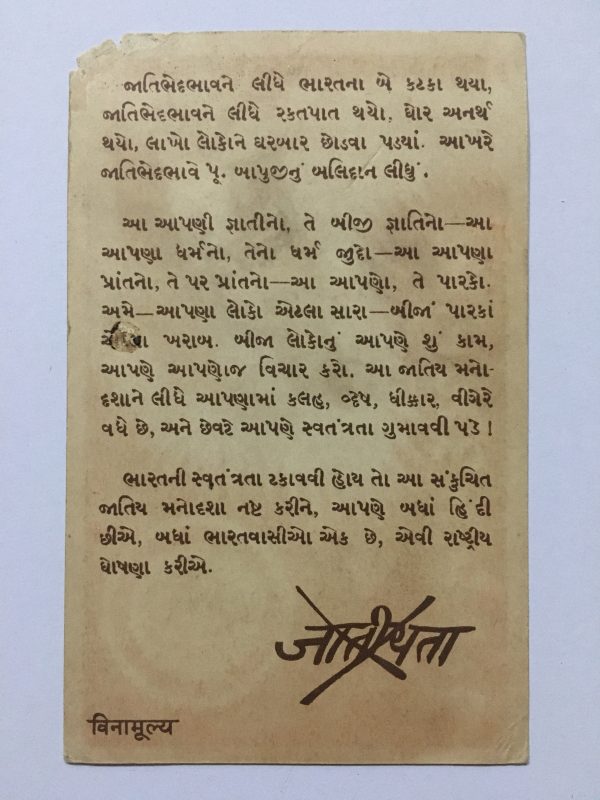 જાતિભેદભાવને લીધે ભારતના બે કટકા થયા,
જાતિભેદભાવને લીધે રક્તપાત થયો, ઘોર અનર્થ
થયો, લાખો લોકોને ઘરબાર છોડવા પડ્યાં. આખરે
જાતિભેદભાવે પૂ. બાપુજીનું બલિદાન લીધું.
આ આપણી જ્ઞાતીનો, તે બીજી જ્ઞાતિનો—આ
આપણા ધર્મનો, તેનો ધર્મ જુદો—આ આપણા
પ્રાંતનો, તે પર પ્રાંતનો—આ આપણો, તે પારકો.
અમે—આપણા લોકો એટલા સારા—બીજાં પારકાં
ખરાબ. બીજા લોકોનું આપણે શું કામ,
આપણે આપણોજ વિચાર કરો. આ જાતિય મનો-
દશાને લીધે આપણામાં કલહ, વ્દેષ, ધીક્કાર, વીગેરે
વધે છે, અને છેવટે આપણે સ્વતંત્રતા ગુમાવવી પડે !
ભારતની સ્વતંત્રતા ટકાવવી હોય તો આ સંકુચિત
જાતિય મનોદશા નષ્ટ કરીને, આપણે બધાં હિંદી
છીએ, બધાં ભારતવાસીઓ એક છે, એવી રાષ્ટ્રીય
ઘોષણા કરીએ.
જાતીયતા
વિનામૂલ્ય